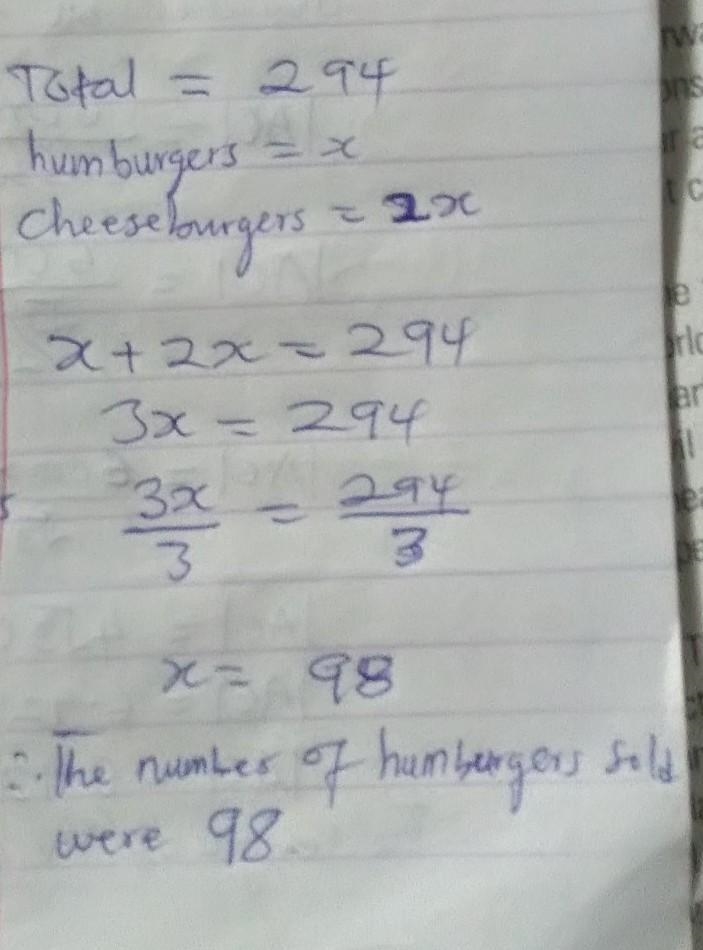 Total = 294
humburgers = x
Cheeseburgers = 2x
x + 2x = 294
3x = 294
3x/3 = 294/3
x = 98
∴ The number of humburgers sold
were 98.